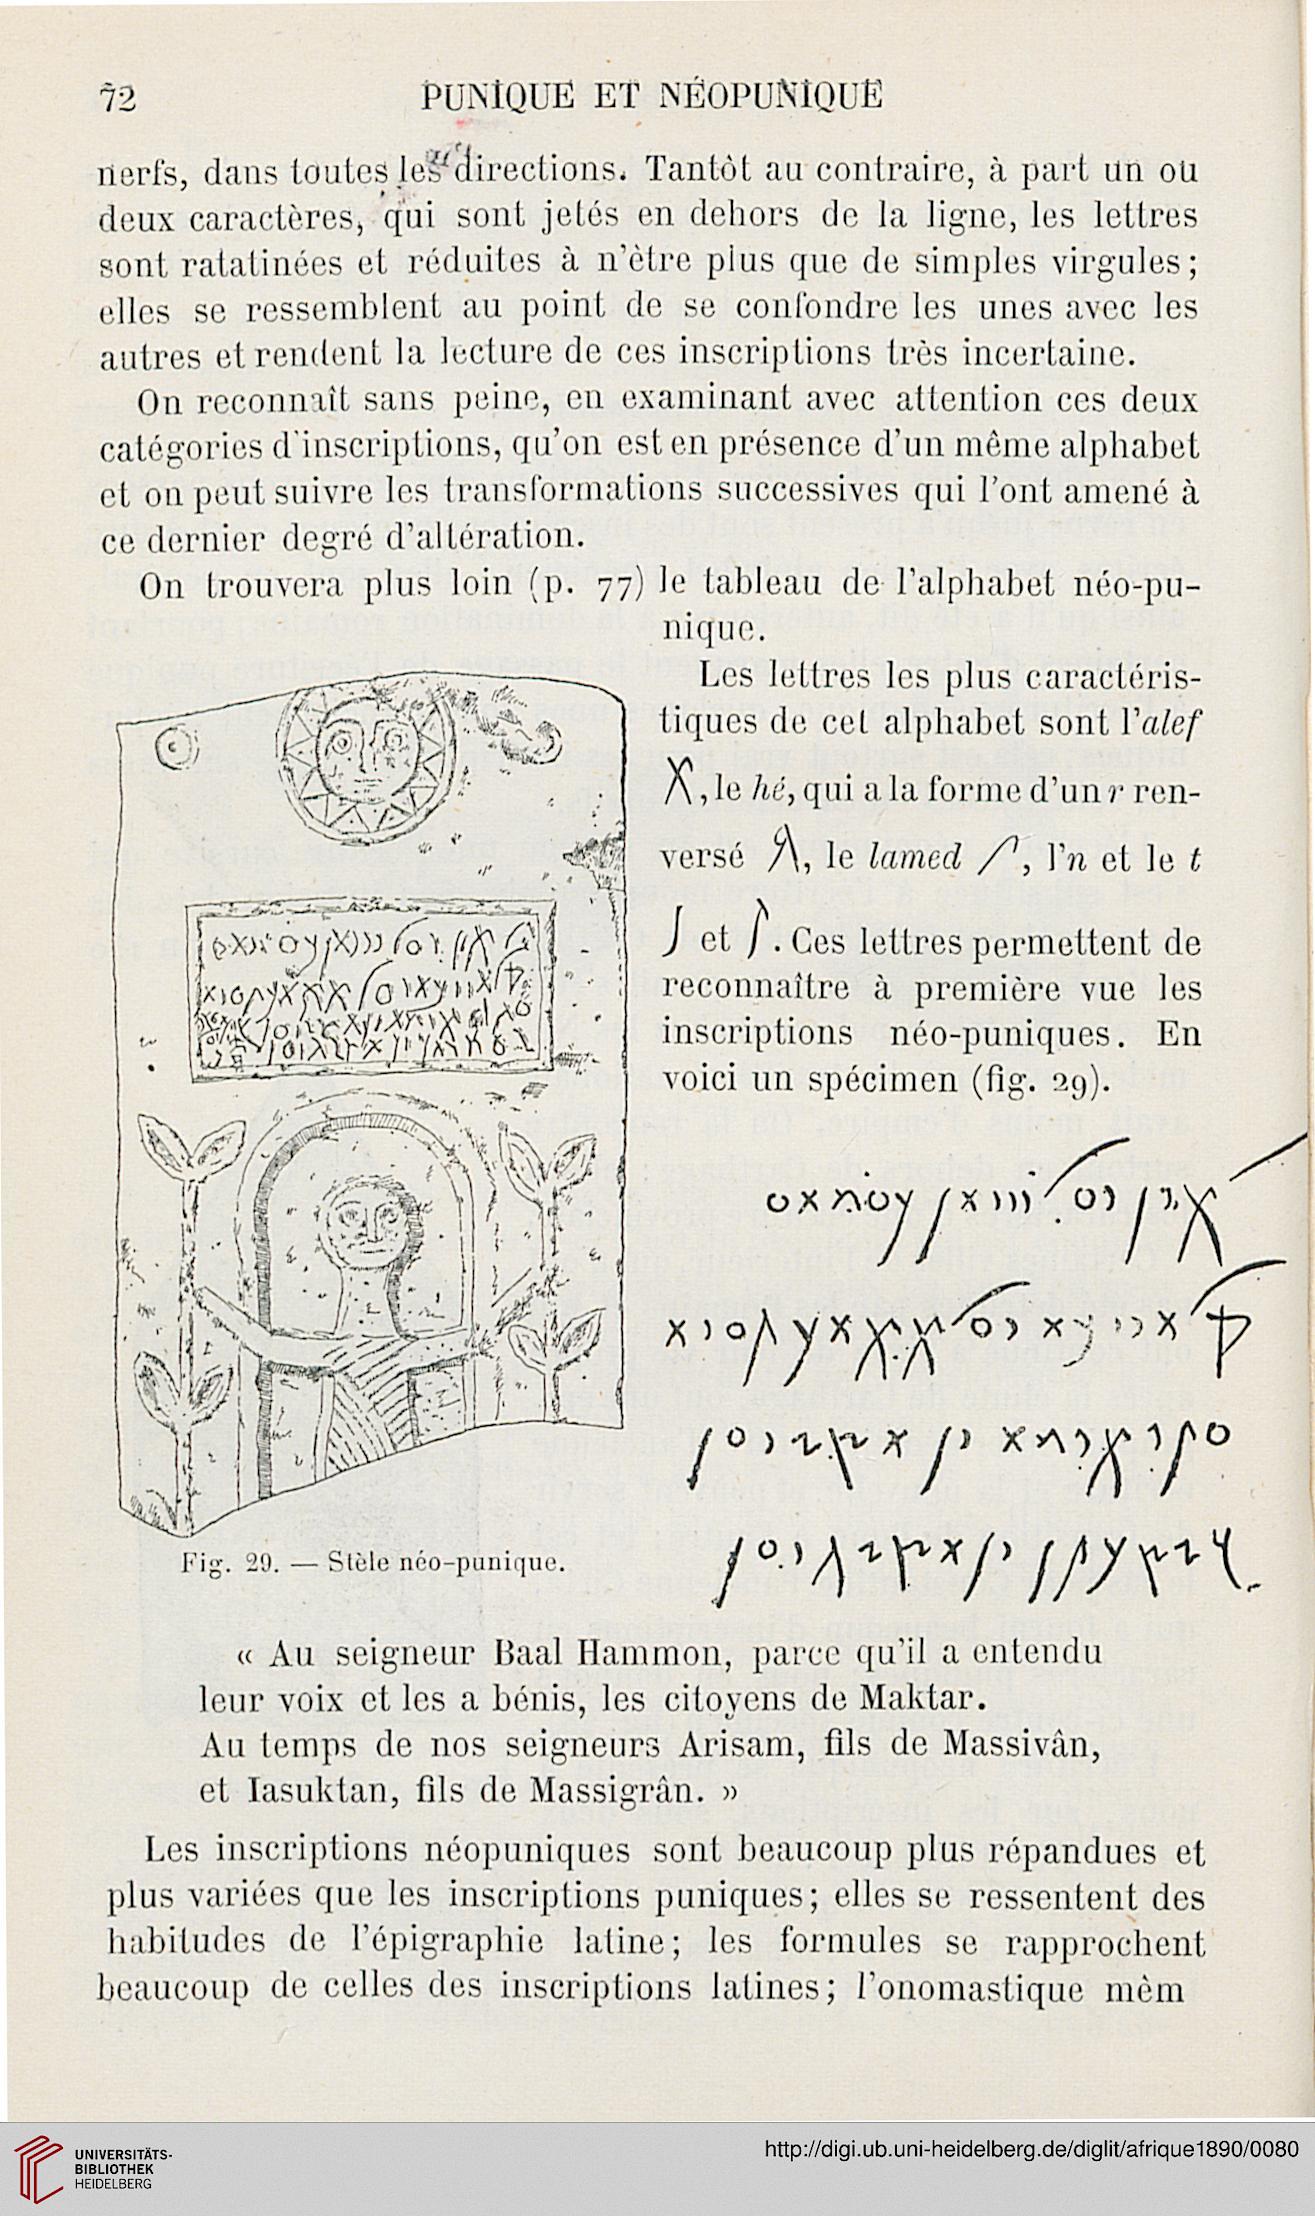 72 PUNIQUE ET NÉOPUNIQUE
nerfs, dans toutes les directions. Tantôt au contraire, à part un ou
deux caractères, qui sont jetés en dehors de la ligne, les lettres
sont ratatinées et réduites à n'être plus que de simples virgules;
elles se ressemblent au point de se confondre les unes avec les
autres et rendent la lecture de ces inscriptions très incertaine.
On reconnaît sans peine, en examinant avec attention ces deux
catégories d'inscriptions, qu'on est en présence d'un même alphabet
et on peut suivre les transformations successives qui l'ont amené à
ce dernier degré d'altération.
On trouvera plus loin (p. 77) le tableau de l'alphabet néo-pu-
nique.
Les lettres les plus caractéris-
tiques de cet alphabet sont l'alef
, le hé, qui a la forme d'un r ren-
versé , le lamed , l'n et le t
et . Ces lettres permettent de
reconnaître à première vue les
inscriptions néo-puniques. En
voici un spécimen (fig. 29).
Fig. 29. — Stèle néo-punique.
« Au seigneur Baal Hammon, parce qu'il a entendu
leur voix et les a bénis, les citoyens de Maktar.
Au temps de nos seigneurs Arisam, fils de Massivân,
et Iasuktan, fils de Massigrân. »
Les inscriptions néopuniques sont beaucoup plus répandues et
plus variées que les inscriptions puniques; elles se ressentent des
habitudes de l'épigraphie latine; les formules se rapprochent
beaucoup de celles des inscriptions latines; l'onomastique mêm
UNIVERSITÄTS-
BIBLIOTHEK
HEIDELBERG
http://digi.ub.uni-heidelberg.de/diglit/afrique1890/0080